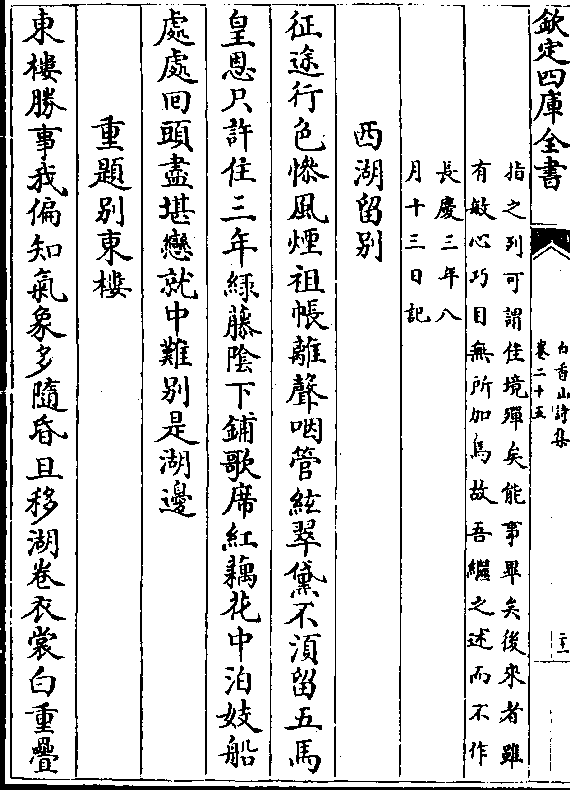 欽定四庫全書
白香山詩集
卷二十五
指之列可謂佳境殫矣能事畢矣後來者雖
有敏心巧目無所加焉故吾繼之述而不作
長慶三年八
月十三日記
西湖留別
征途行色慘風煙祖帳離聲咽管絃翠黛不湏留五馬
皇恩只許住三年綠藤陰下鋪歌席紅藕花中泊妓船
處處囘頭盡堪戀就中難別是湖邊
重題別東樓
東樓勝事我偏知氣象多隨昏旦移湖卷衣裳白重疊